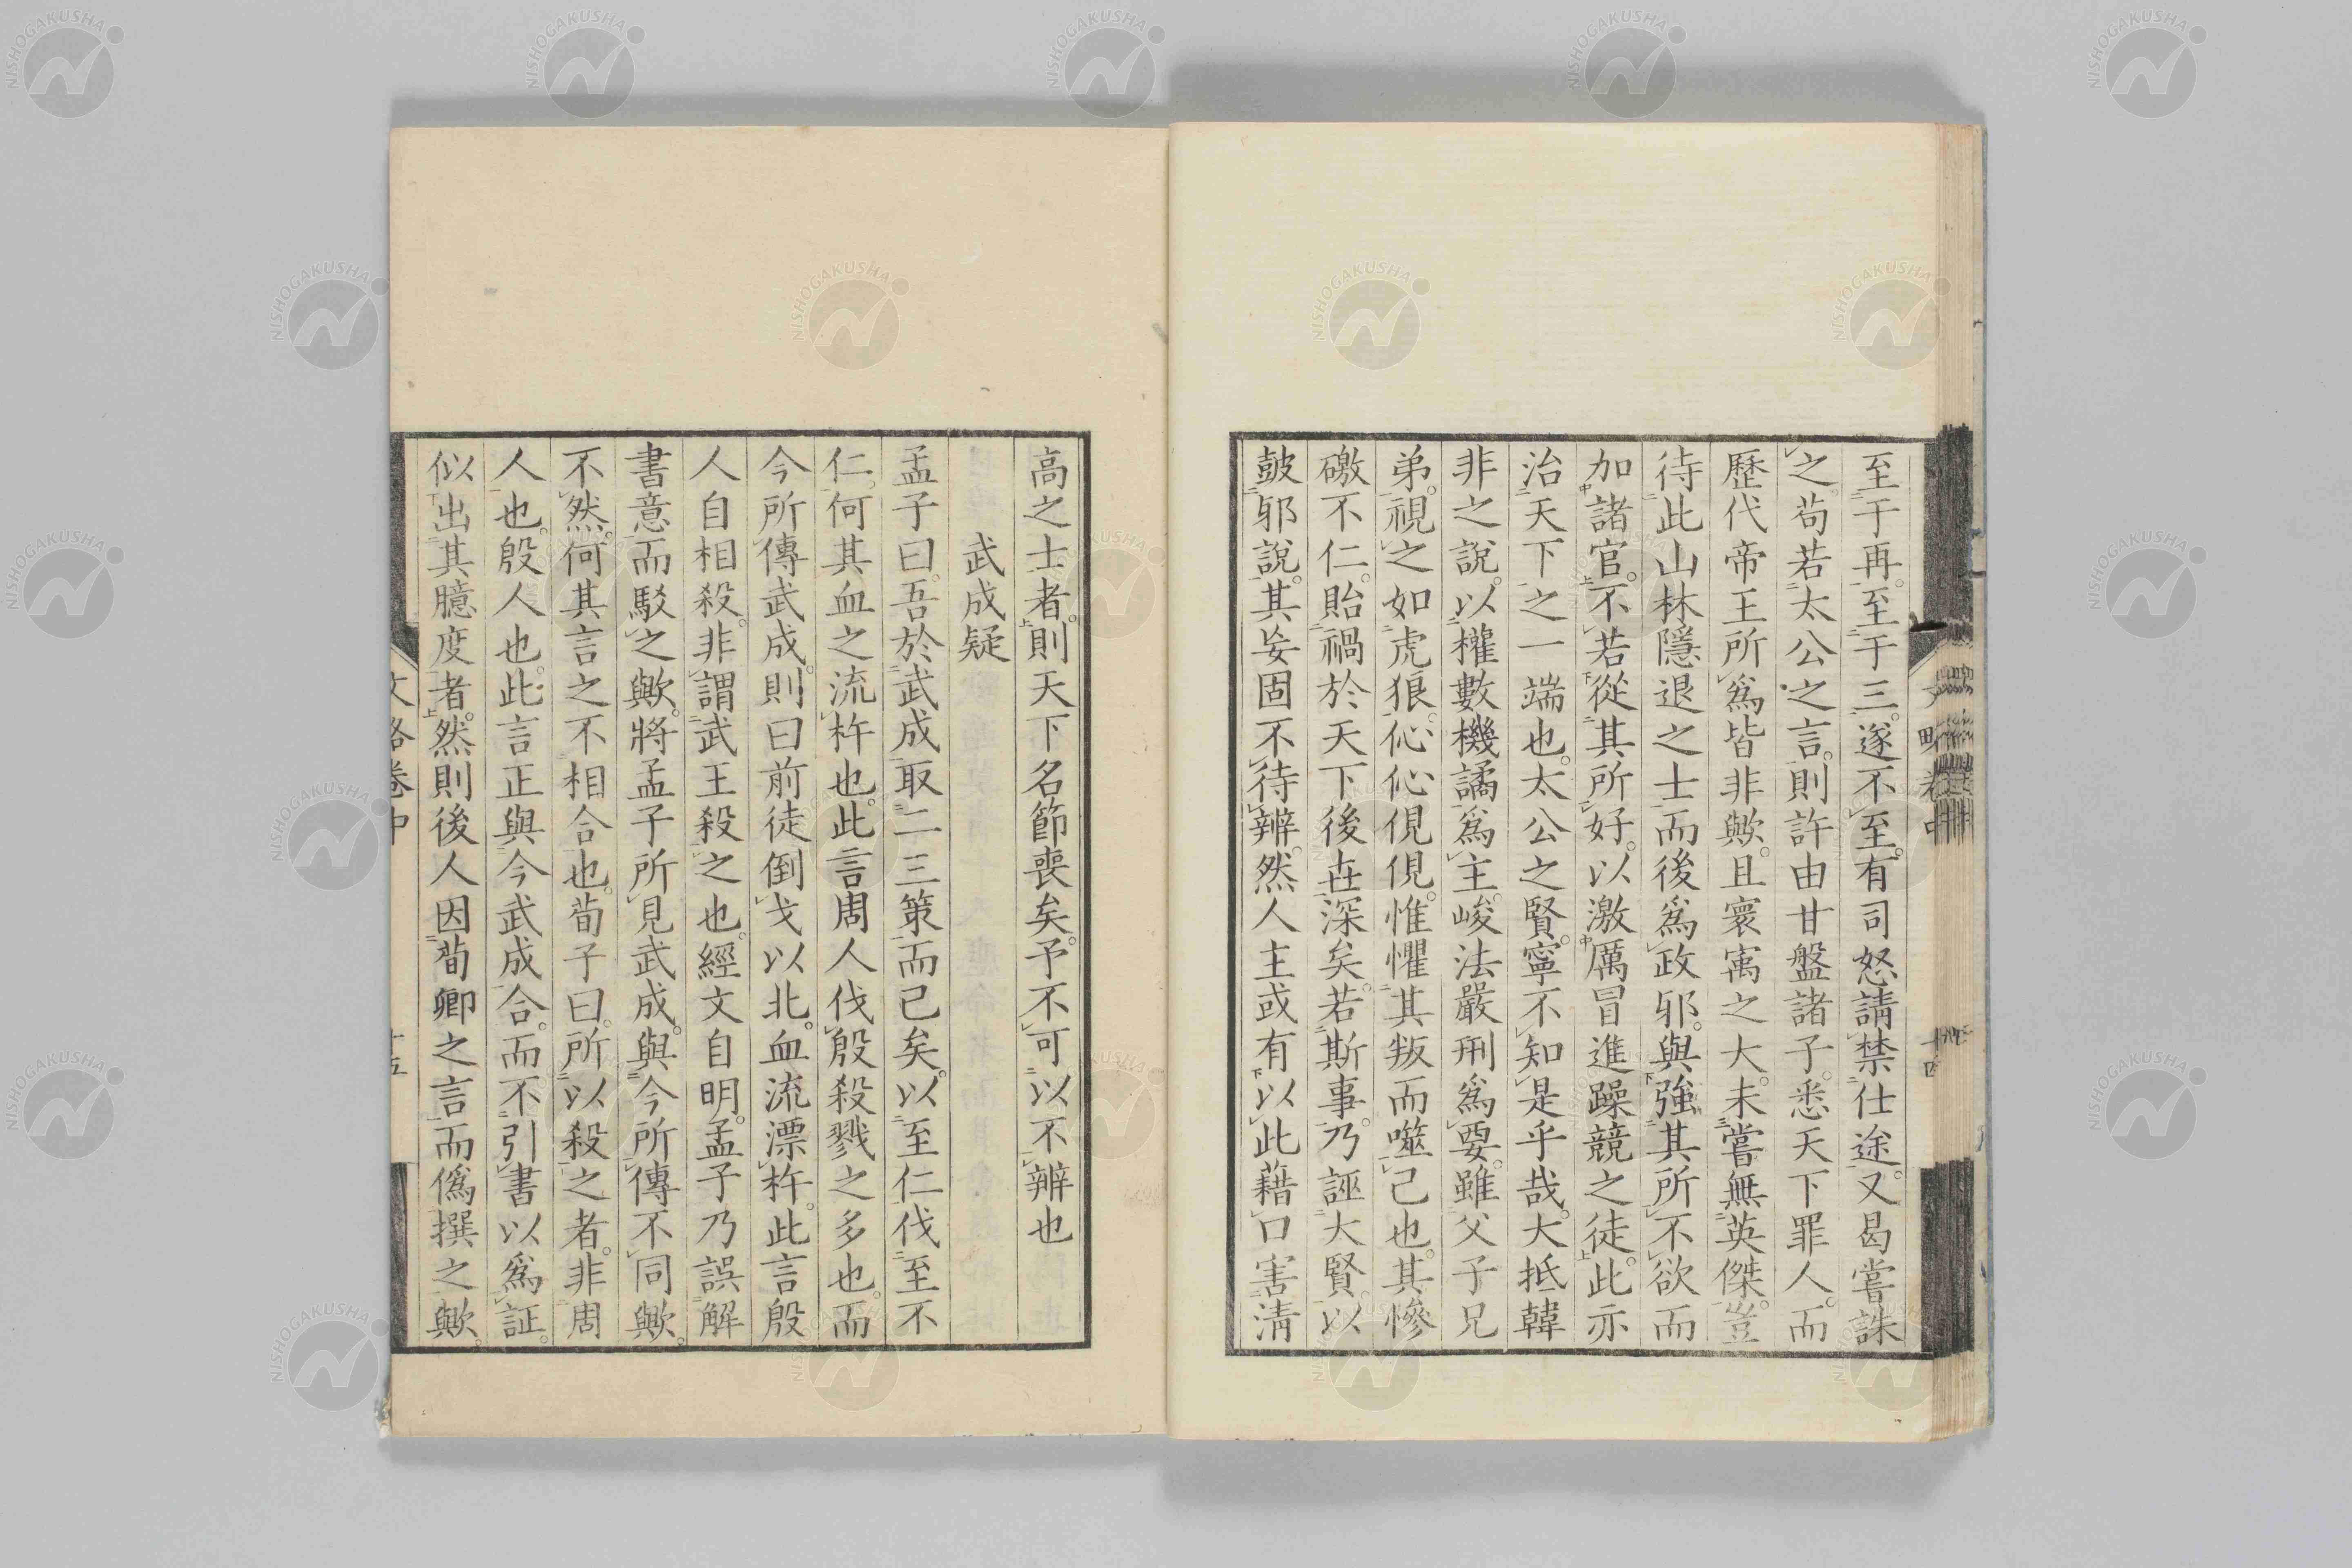 至于再。至于三。遂不至。有司怒請禁仕途。又曷嘗誅
之。苟若太公之言。則許由甘盤諸子。悉天下罪人。而
歷代帝王所爲皆非歟。且寰寓之大。未嘗無英傑。豈
待此山林隱退之士。而後爲政邪。與強其所不欲而
加諸官。不若從其所好。以激厲冒進躁競之徒。此亦
治天下之一端也。太公之賢。寧不知是乎哉。大抵韓
非之說。以權數機譎爲主。峻法嚴刑爲要。雖父子兄
弟。視之如虎狼。伈伈俔俔。惟懼其叛而噬己也。其慘
礉不仁。貽禍於天下後世深矣。若斯事。乃誣大賢。以
鼓邪說。其妄固不待辨。然人主或有以此藉口害淸
高之士者。則天下名節喪矣。予不可以不辨也
武成疑
孟子曰。吾於武成取二三策而已矣。以至仁伐至不
仁。何其血之流杵也。此言周人伐殷殺戮之多也。而
今所傳武成。則曰前徒倒戈以北。血流漂杵。此言殷
人自相殺。非謂武王殺之也。經文自明。孟子乃誤解
書意而駁之歟。將孟子所見武成。與今所傳不同歟。
不然。何其言之不相合也。荀子曰。所以殺之者。非周
人也。殷人也。此言正與今武成合。而不引書以爲証。
似出其臆度者。然則後人因荀卿之言而僞撰之歟。
文略卷中
十五
NISHOGAKUSHA